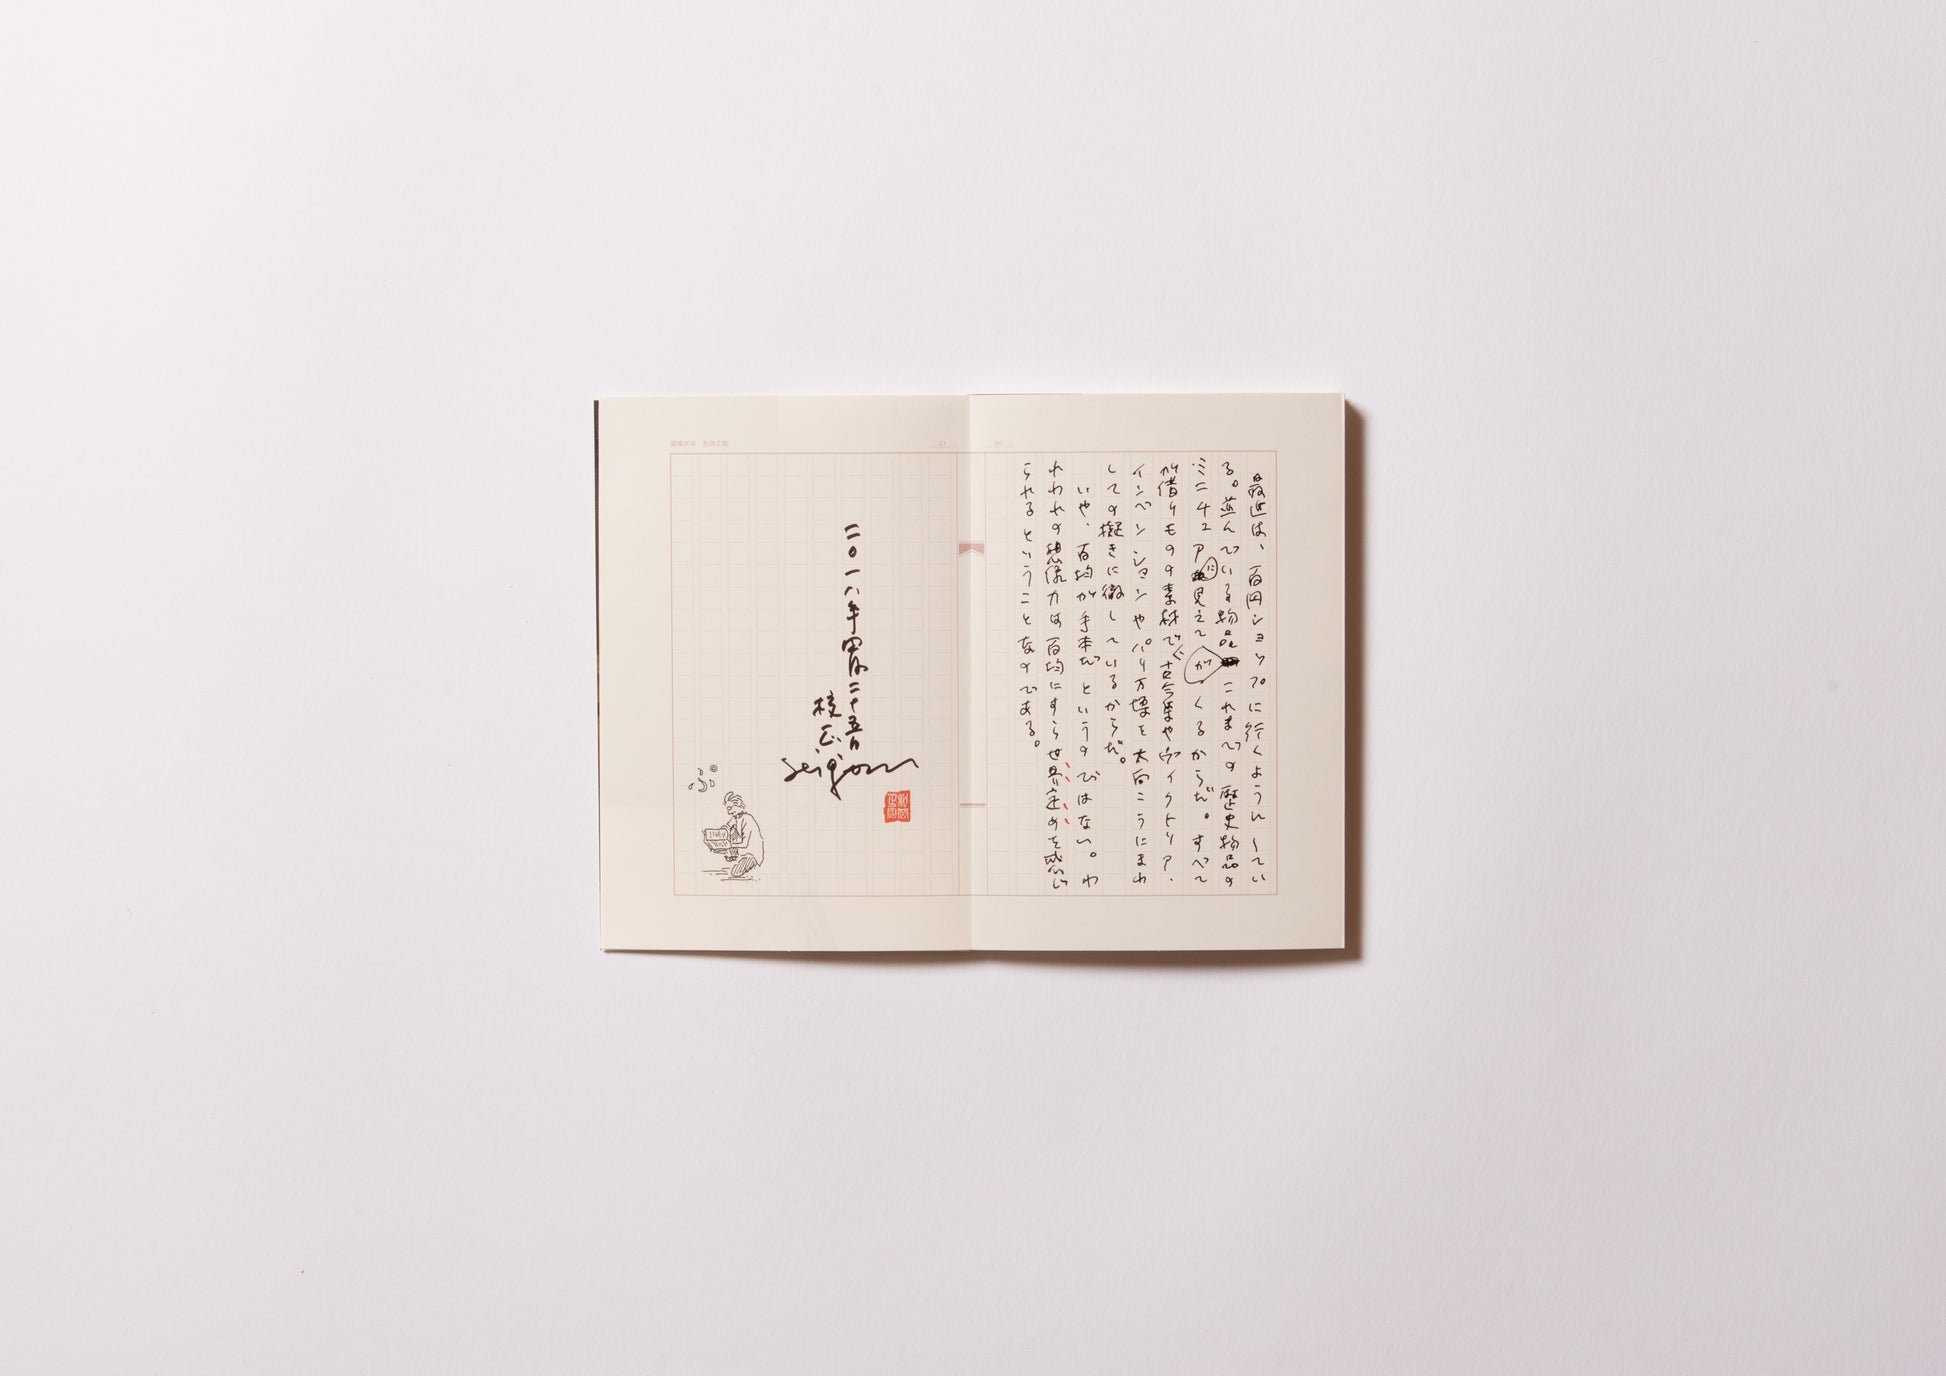 20
最近は、百円ショップに行くようにしてい
る。並んでいる物品がこれまでの歴史物品の
ミニチュアに見えてくるからだ。すべて
が借りものの素材で、古今集やヴィクトリア・
インベンションやパリ万博を大向こうにまわ
しての擬きに徹しているからだ。
いや、百均が手本だというのではない。わ
れわれの想像力は百均にすら世界定めを感じ
られるということなのである。
21
編集手本 松岡正剛
二〇一八年四月二十五日
校正
seigow
松岡正剛
ぷ。